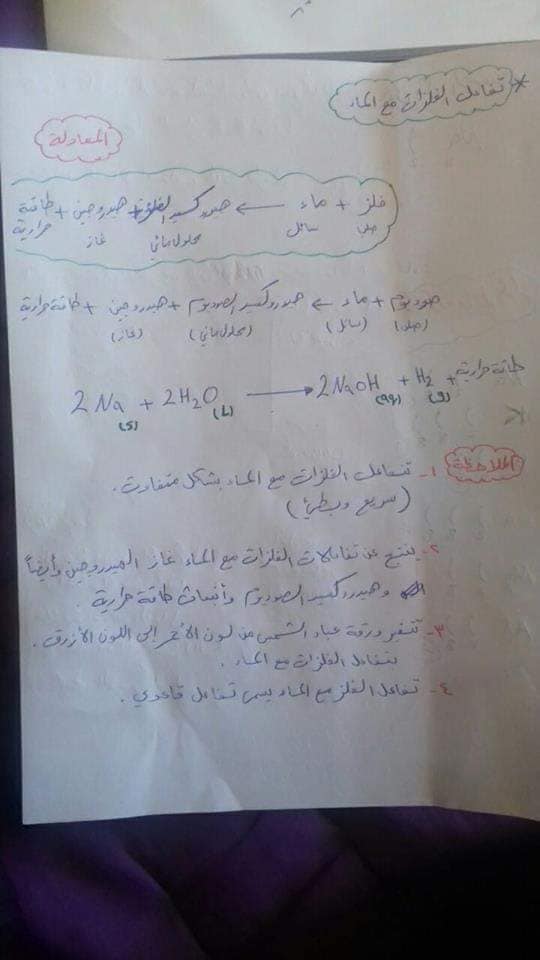 * تفاعل الفلزات مع الماء
المعادلة
فلز + ماء ← هيدروكسيد الفلز + هيدروجين + طاقة حرارية
صلب سائل محلول مائي غاز
صوديوم + ماء ← هيدروكسيد الصوديوم + هيدروجين + طاقة حرارية
(صلب) (سائل) (محلول مائي) (غاز)
2Na(s) + 2H2O(L) → 2NaOH(aq) + H2(g) + طاقة حرارية
الملاحظة
١- تتفاعل الفلزات مع الماء بشكل متفاوت.
(سريع وبطيئ)
٢- ينتج عن تفاعلات الفلزات مع الماء غاز الهيدروجين وأيضاً
وهيدروكسيد الصوديوم وأنبعاث طاقة حرارية.
٣- تتغير ورقة عباد الشمس من لون الأحمر إلى اللون الأزرق.
بتفاعل الفلزات مع الماء.
٤- تفاعل الفلز مع الماء يسمى تفاعل قاعدي.